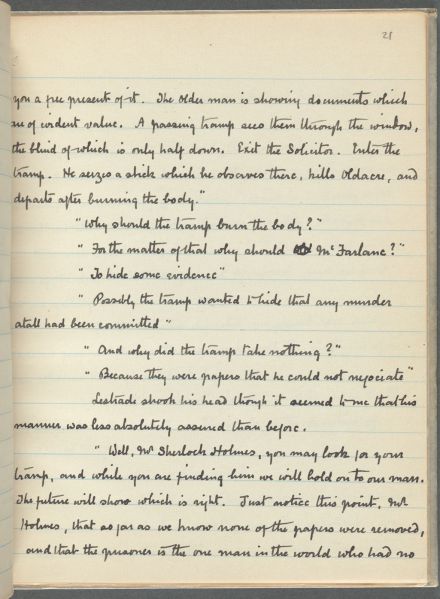 21
you a free present of it. The older man is showing documents which
are of evident value. A passing tramp sees them through the window,
the blind of which is only half down. Exit the Solicitor. Enter the
tramp. He seizes a stick which he observes there, kills Oldacre, and
departs after burning the body."
"Why should the tramp burn the body?"
"For the matter of that why should McFarlane?"
"To hide some evidence"
"Possibly the tramp wanted to hide that any murder
atall had been committed"
"And why did the tramp take nothing?"
"Because they were papers that he could not negociate"
Lestrade shook his head though it seemed to me that his
manner was less absolutely assured than before.
"Well, Mr Sherlock Holmes, you may look for your
tramp, and while you are finding him we will hold on to our man.
The future will show which is right. Just notice this point, Mr
Holmes, that as far as we know none of the papers were removed,
and that the prisoner is the one man in the world who had no